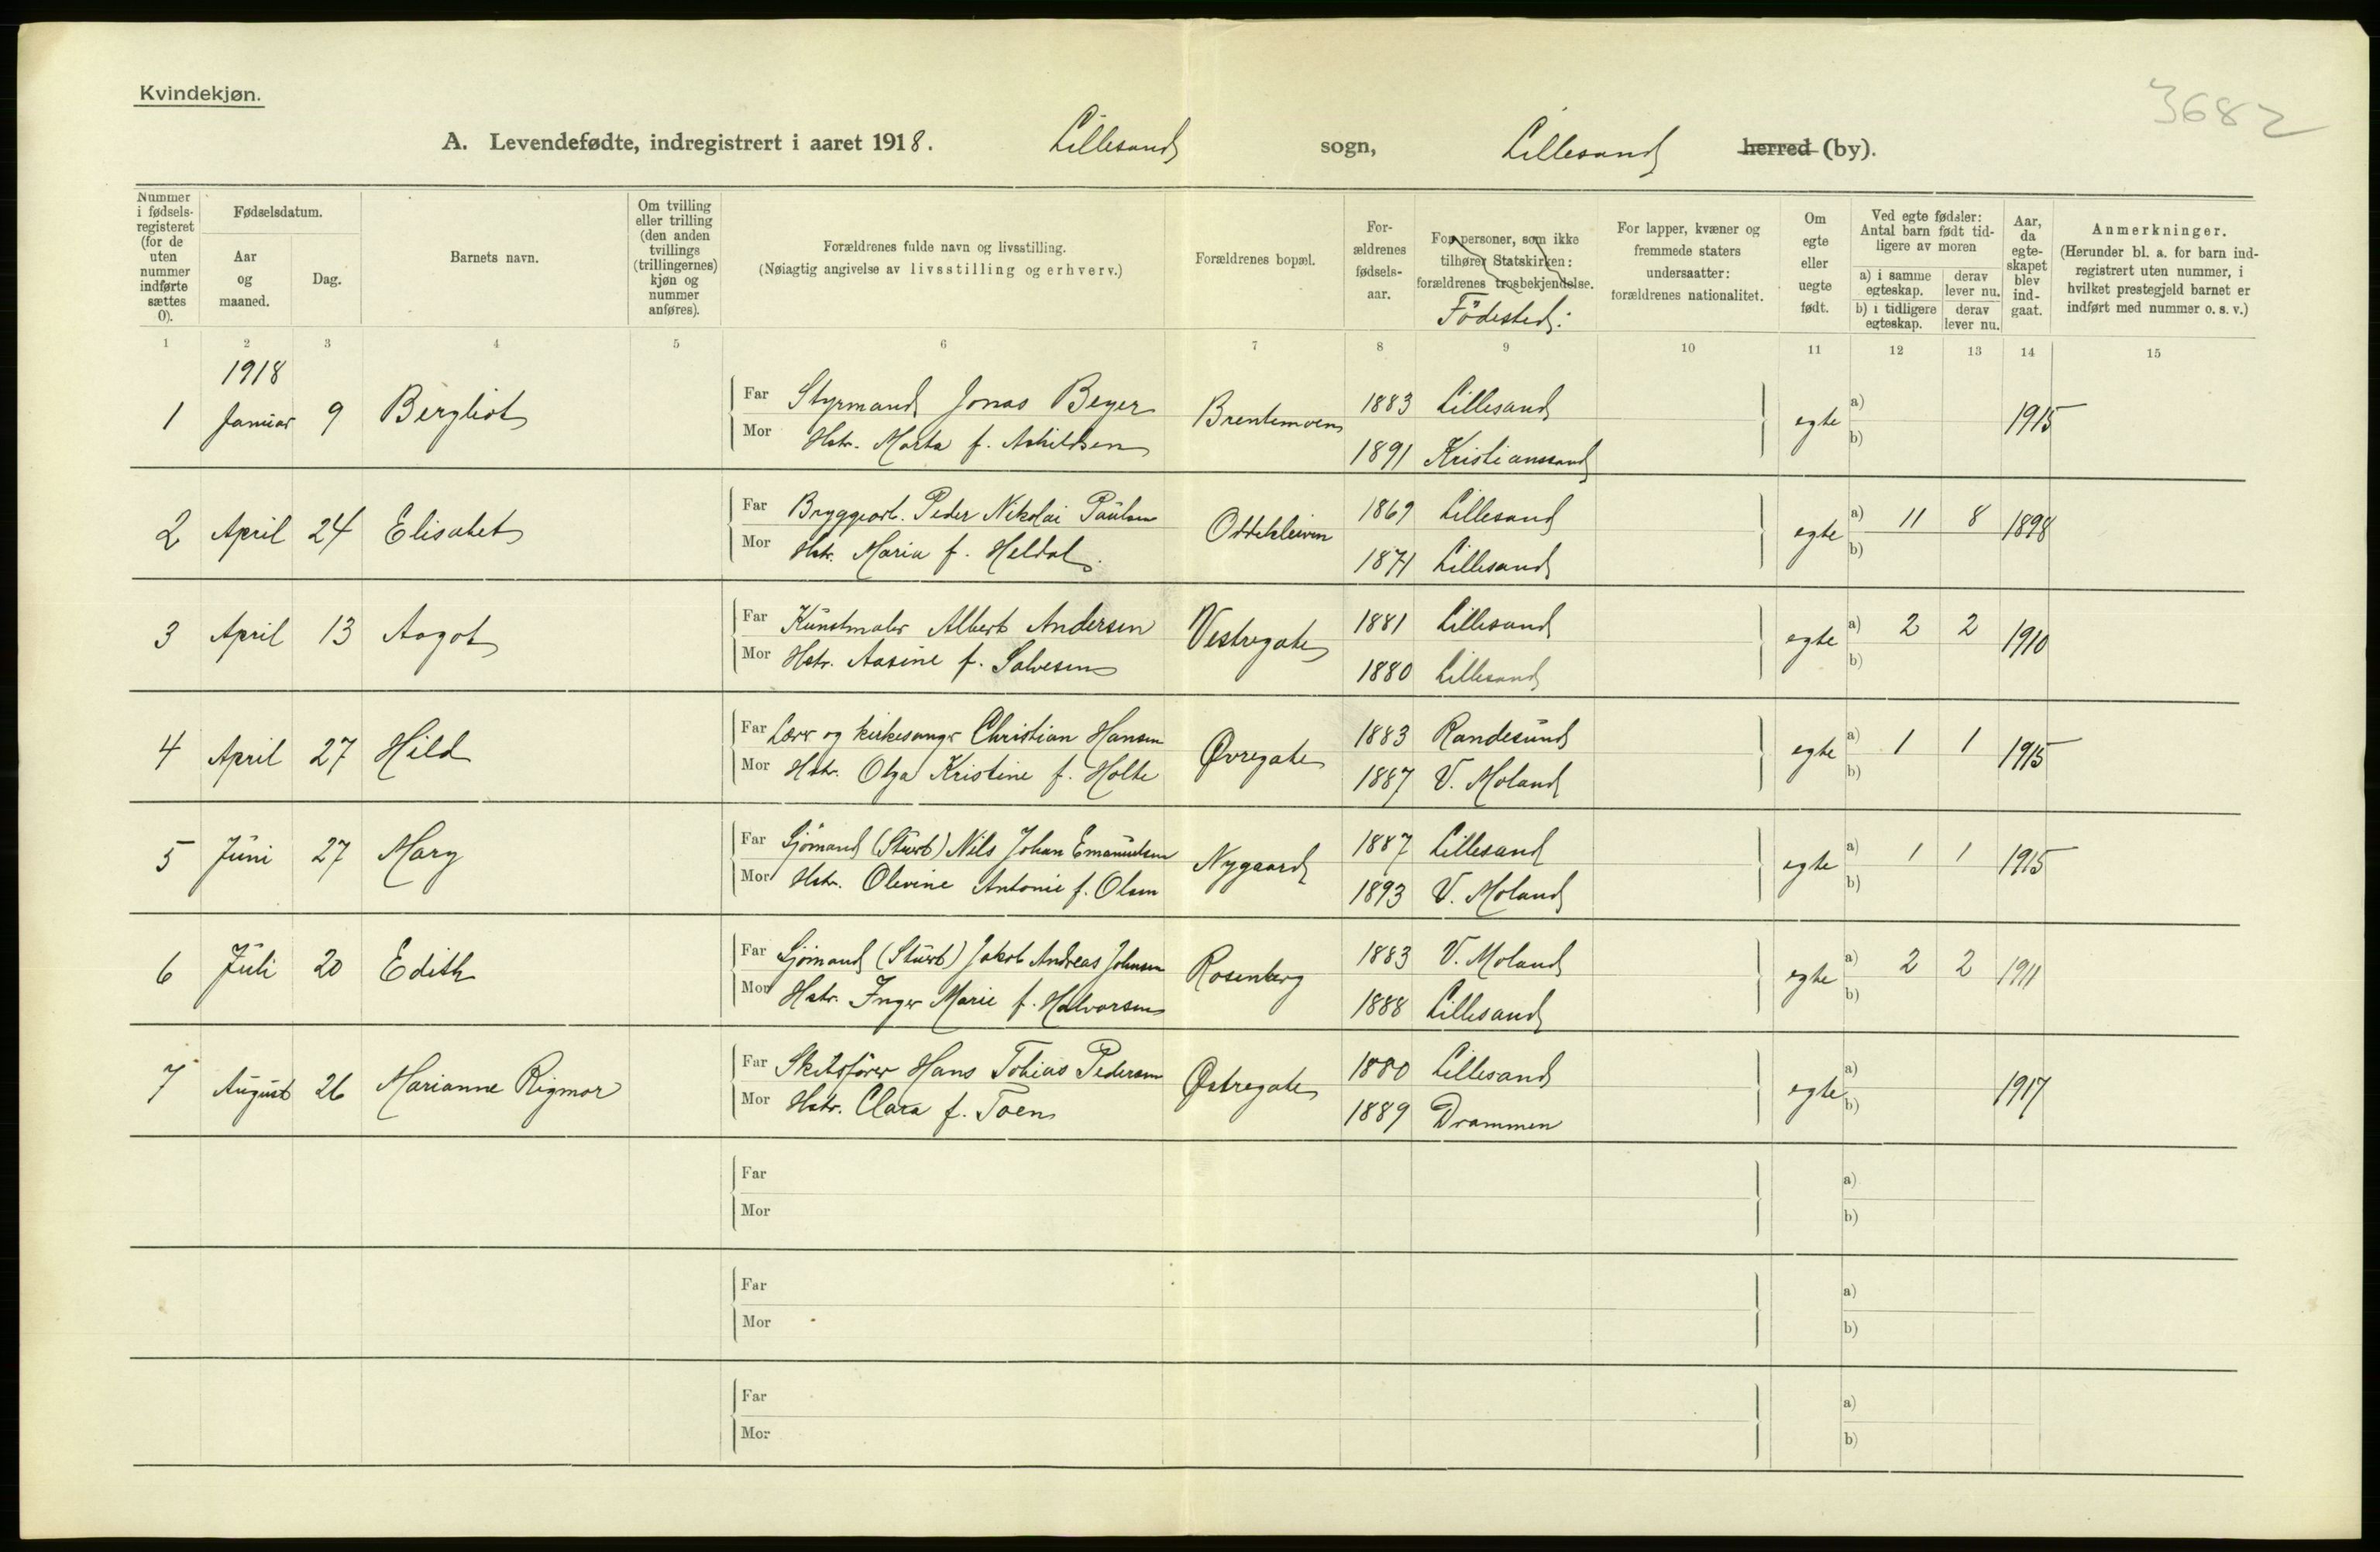 Kvindekjøn.
3682
A. Levendefødte, indregistrert i aaret 1918. Lillesand sogn, Lillesand herred (by).
Nummer i fødsels-registeret (for de uten nummer indførte sættes 0).
Fødselsdatum.
Aar og maaned.
Dag.
Barnets navn.
Om tvilling eller trilling (den anden tvillings (trillingernes) kjøn og nummer anføres).
Forældrenes fulde navn og livsstilling.
(Nøiagtig angivelse av livsstilling og erhverv.)
Forældrenes bopæl.
For-ældrenes fødsels-aar.
For personer, som ikke tilhører Statskirken: forældrenes trosbekjendelse.
Födested:
For lapper, kvæner og fremmede staters undersaatter: forældrenes nationalitet.
Om egte eller uegte født.
Ved egte fødsler: Antal barn født tid-ligere av moren
a) i samme egteskap.
derav lever nu.
b) i tidligere egteskap.
derav lever nu.
Aar, da egte-skapet blev ind-gaat.
Anmerkninger.
(Herunder bl. a. for barn ind-registrert uten nummer, i hvilket prestegjeld barnet er indført med nummer o. s. v.)
1 2 3 4 5 6 7 8 9 10 11 12 13 14 15
1918
1 Januar 9 Bergliot Far Styrmand Jonas Beyer Brentemoen 1883 Lillesand egte a) 1915
Mor Hstr. Marta f. Askildsen 1891 Kristianssand b)
2 April 24 Elisabet Far Bryggearb. Peder Nikolai Paulsen 1869 Lillesand egte a) 11 8 1898
Mor Hstr. Maria f. Heldal. 1871 Lillesand b)
3 April 13 Aagot Far Kunstmaler Albert Andersen Vestregate 1881 Lillesand egte a) 2 2 1910
Mor Hstr. Aasine f. Salvesen 1880 Lillesand b)
4 April 27 Hild Far Lærer og kirkesanger Christian Hansen Øvregate 1883 Randesund egte a) 1 1 1915
Mor Hstr. Olga Kristine f. Holte 1887 V. Moland b)
5 Juni 27 Mary Far Sjömand (Stuert) Nils Johan Emanuelsen Nygaard 1887 Lillesand egte a) 1 1 1915
Mor Hstr. Olevine Antonie f. Olsen 1893 V. Moland b)
6 Juli 20 Edith Far Sjömand (Stuert) Jakob Andreas Johnsen Rosenberg 1883 V. Moland egte a) 2 2 1911
Mor Hstr. Inger Marie f. Halvorsen 1888 Lillesand b)
7 August 26 Marianne Rigmor Far Skibsförer Hans Tobias Pedersen Østregate 1880 Lillesand egte a) 1917
Mor Hstr. Clara f. Toen 1889 Drammen b)
Far a)
Mor b)
Far a)
Mor b)
Far a)
Mor b)